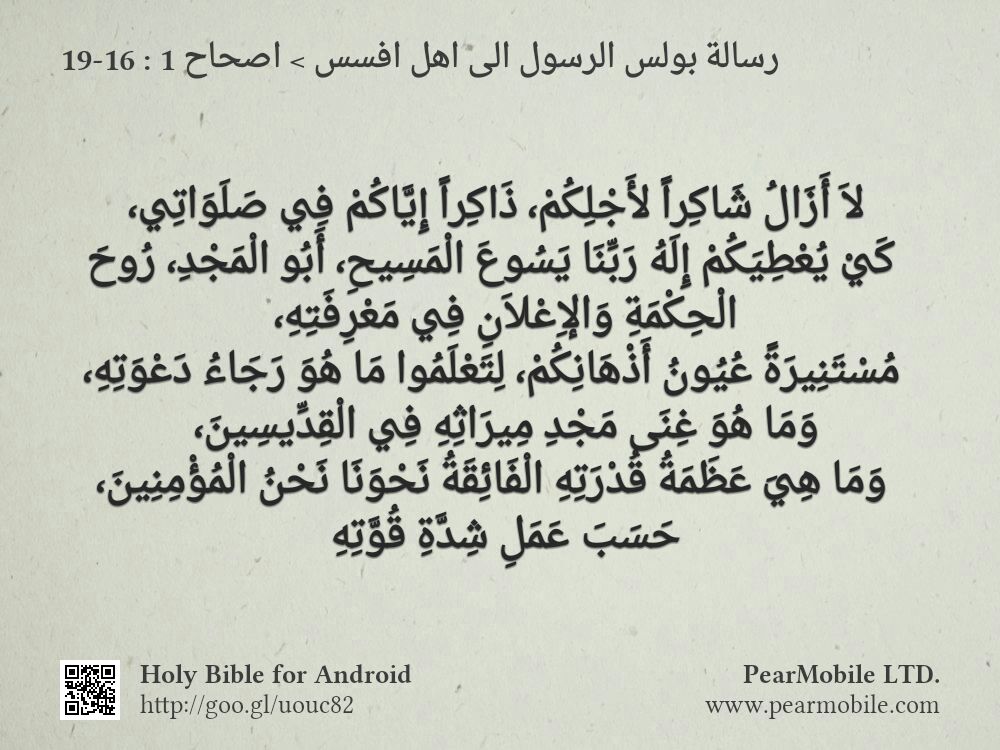 رسالة بولس الرسول الى اهل افسس > اصحاح 1 : 16-19
لاَ أَزَالُ شَاكِراً لأَجْلِكُمْ، ذَاكِراً إِيَّاكُمْ فِي صَلَوَاتِي،
كَيْ يُعْطِيَكُمْ إِلَهُ رَبِّنَا يَسُوعَ الْمَسِيحِ، أَبُو الْمَجْدِ، رُوحَ
الْحِكْمَةِ وَالإِعْلاَنِ فِي مَعْرِفَتِهِ،
مُسْتَنِيرَةً عُيُونُ أَذْهَانِكُمْ، لِتَعْلَمُوا مَا هُوَ رَجَاءُ دَعْوَتِهِ،
وَمَا هُوَ غِنَى مَجْدِ مِيرَاثِهِ فِي الْقِدِّيسِينَ،
وَمَا هِيَ عَظَمَةُ قُدْرَتِهِ الْفَائِقَةُ نَحْوَنَا نَحْنُ الْمُؤْمِنِينَ،
حَسَبَ عَمَلِ شِدَّةِ قُوَّتِهِ
Holy Bible for Android
http://goo.gl/uouc82
PearMobile LTD.
www.pearmobile.com